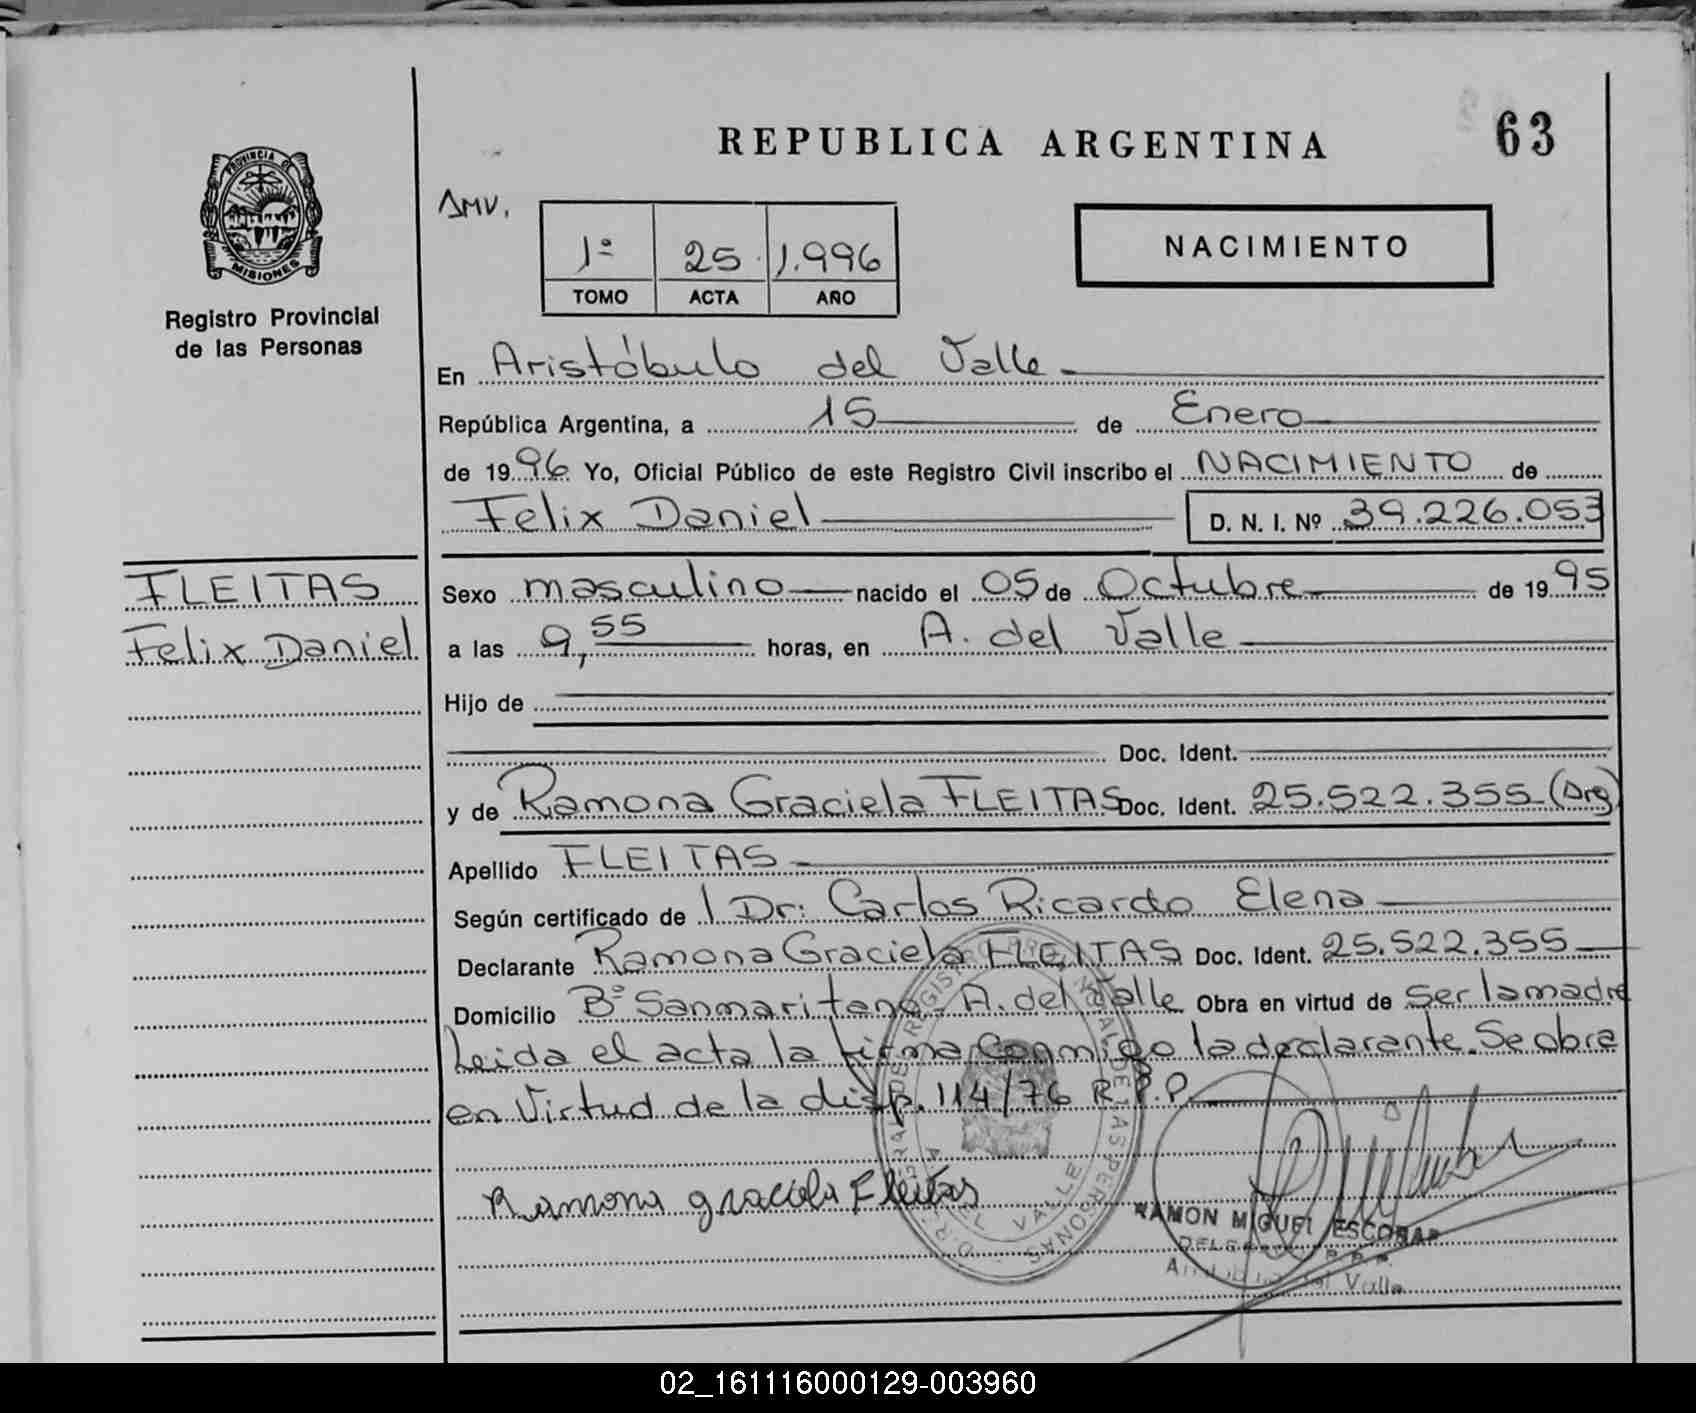 REPUBLICA ARGENTINA
63
PROVINCIA DE
MISIONES
Registro Provincial
de las Personas
1º 25 1.996
TOMO ACTA AÑO
NACIMIENTO
En Aristóbulo del Valle
República Argentina, a 15 de Enero
de 1996 Yo, Oficial Público de este Registro Civil inscribo el NACIMIENTO de
Felix Daniel D. N. I. Nº 39.226.053
FLEITAS
Felix Daniel
Sexo masculino nacido el 05 de Octubre de 1995
a las 9,55 horas, en A. del Valle
Hijo de
Doc. Ident.
y de Ramona Graciela FLEITAS Doc. Ident. 25.522.355 (Arg)
Apellido FLEITAS
Según certificado de Dr: Carlos Ricardo Elena
Declarante Ramona Graciela FLEITAS Doc. Ident. 25.522.355
Domicilio Bº Sanmaritano A. del Valle Obra en virtud de Ser la madre
Leida el acta la firma conmigo la declarante. Se obra
en Virtud de la disp. 114/76 R.P.P.
Ramona graciela Fleitas
RAMON MIGUEL ESCOBAR
del Valle
02_161116000129-003960